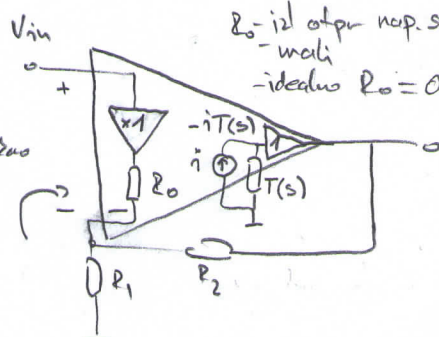 Vin
R₀ - izl otpr nap. s
- mali
- idealno R₀ = 0
+
×1
- i T(s)
1
i
T(s)
R₀
-
-
R₁
R₂